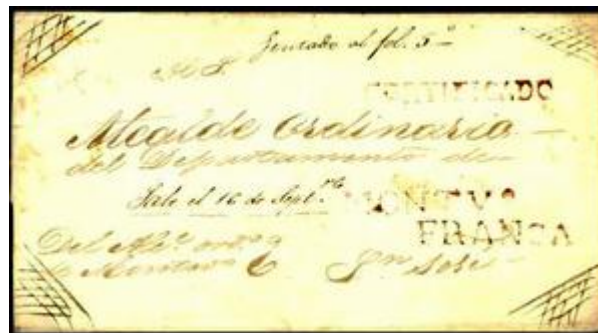 Sentado al fol. 5º
CERTIFICADO
Alcalde Ordinario
del Departamento de
Sale el 16 de Septbre
MONTVº
FRANCA
Del Alce. ordº
de Montevº
Sn José